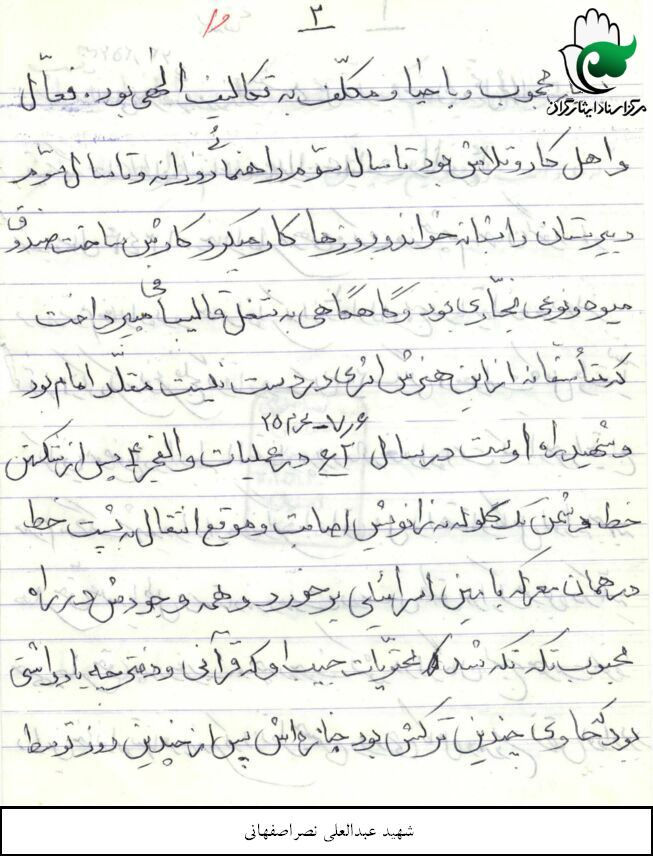 ۳
مرکز اسناد ایثارگران
محجوب و با حیا و مکلّف به تکالیف الهی بود. فعّال
و اهل کار و تلاش بود تا سال سوّم راهنمائی روزانه و تا سال سوّم
دبیرستان را شبانه خواند و روزها کار میکرد کارش ساخت صندوق
میوه و نوعی نجّاری بود و گاهگاهی به شغل قالیبافی میپرداخت
که متأسفانه از این هنرش اثری در دست نیست مقلّد امام بود
و شهید راه اوست در سال در عملیات والفجر ۴ پس از شکستن
خط دشمن یک گلوله به زانویش اصابت و موقع انتقال به پشت خط
در همان معرکه با مین اسرائیلی برخورد و همه وجودش در راه
محبوب تکه تکه شد محتویّات جیب او که قرآنی و دفترچه یادداشتی
بود که حاوی چندین ترکش بود جنازه اش پس از چندین روز توسط
شهید عبدالعلی نصراصفهانی